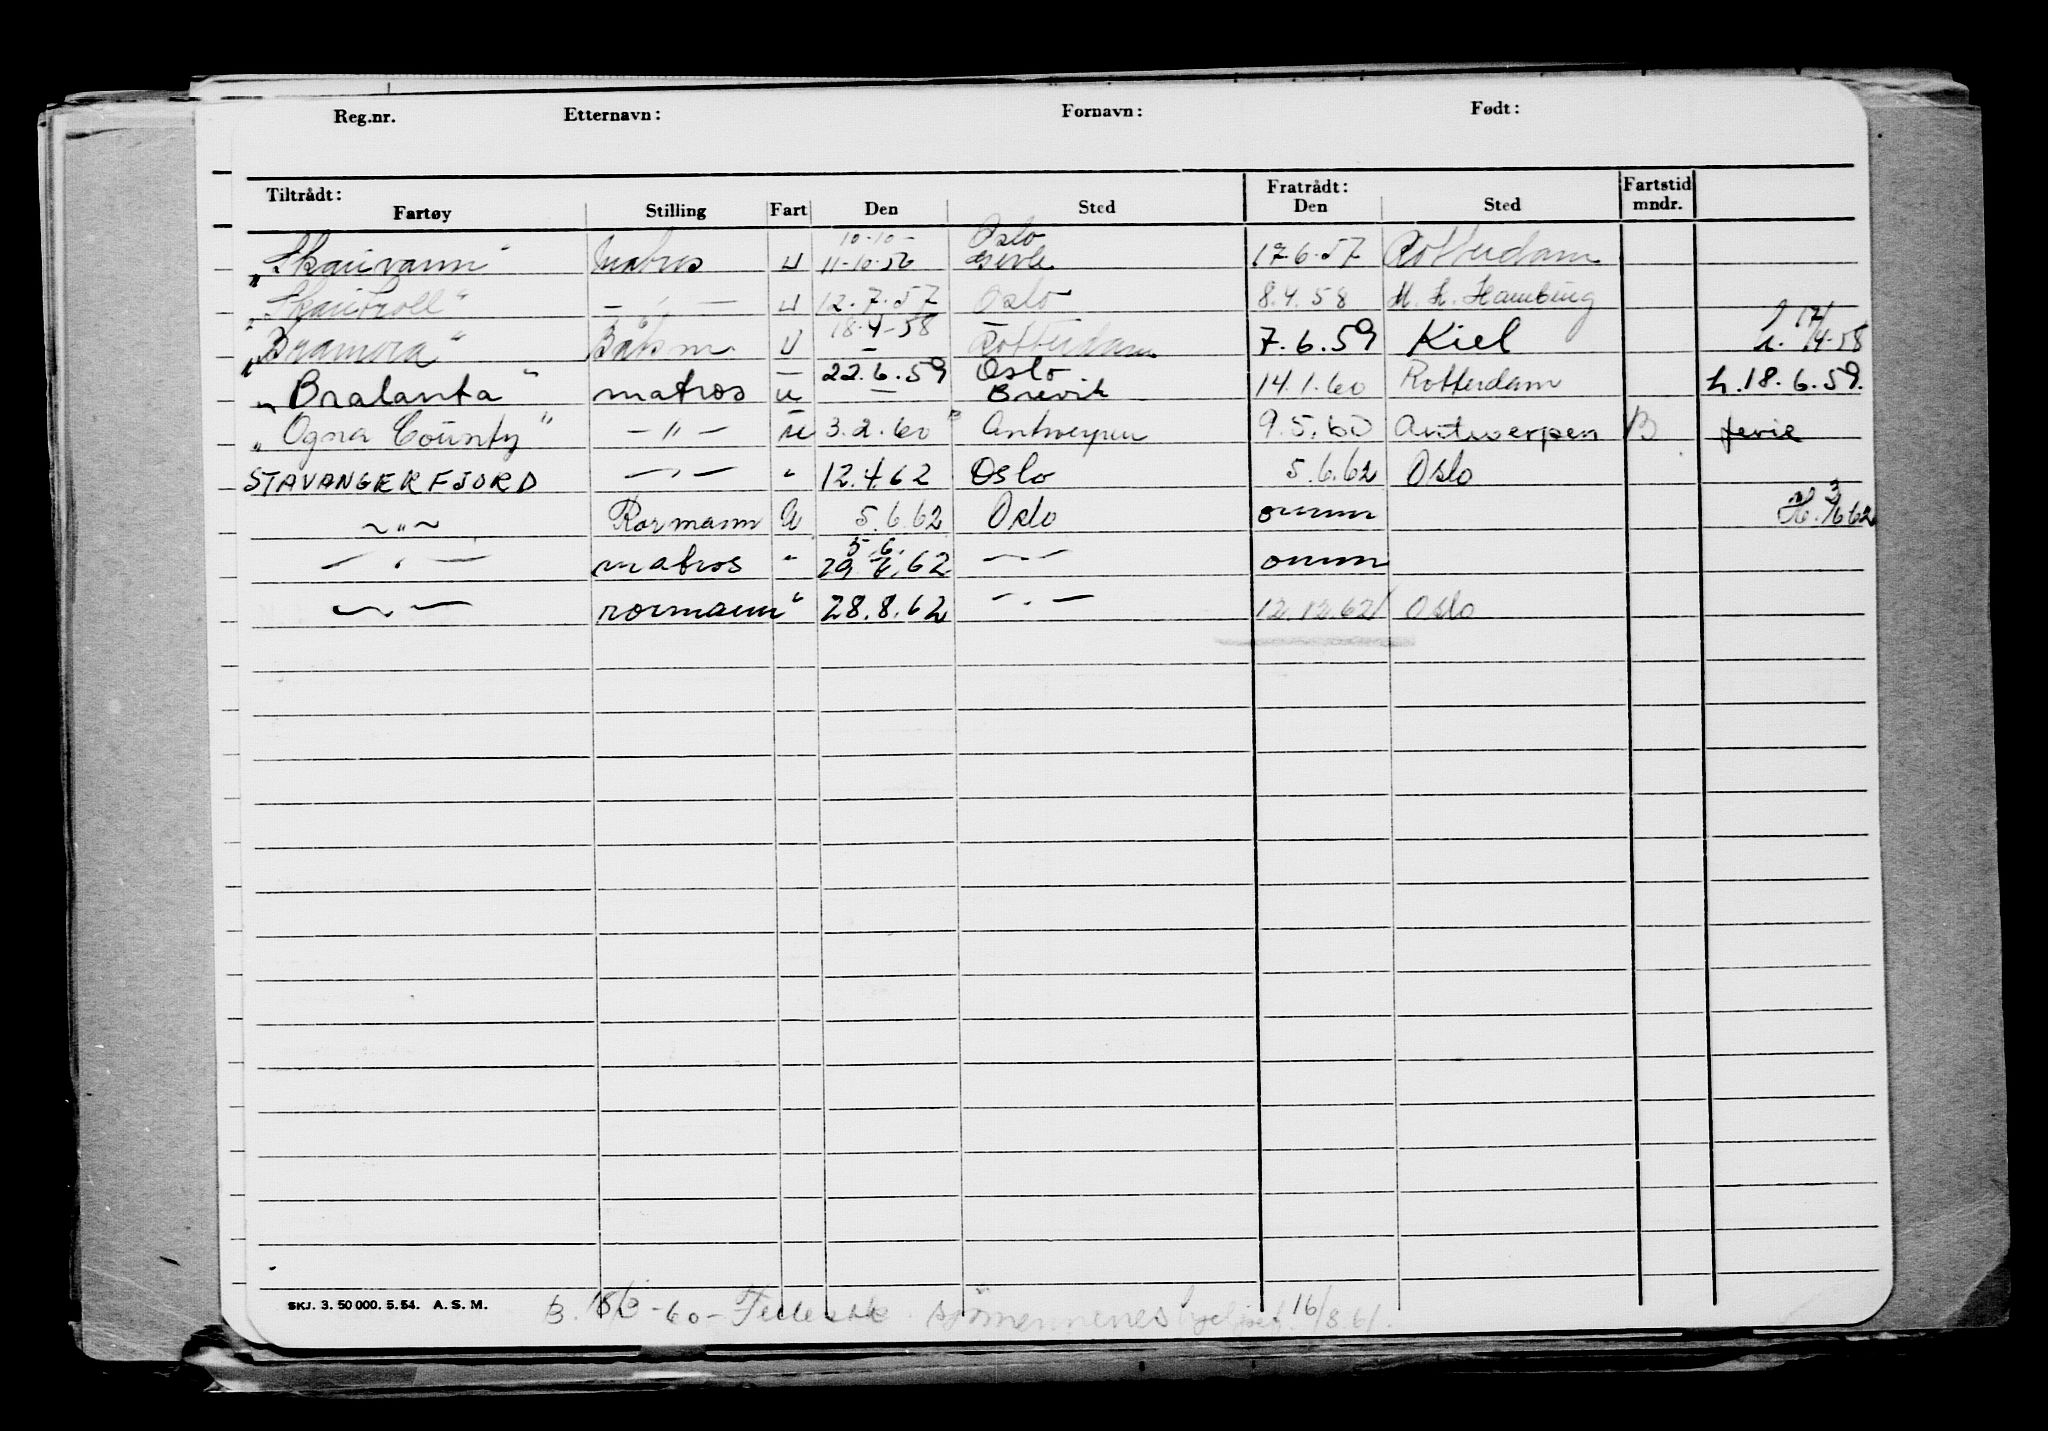 Reg.nr. Etternavn: Fornavn: Født:
Tiltrådt: Fratrådt: Fartstid
Fartøy Stilling Fart Den Sted Den Sted mndr.
10-10- Oslo
"Skauvann" Matros U 11-10-56 Gevle 17.6.57 Rotterdam
"Skautroll" — " — U 12.7.57 Oslo 8.4.58 Hamburg
"Bramora" Båtsm U 18-4-58 Rotterdam 7.6.59 Kiel 17/4-58
"Bralanta" matros u 22.6.59 Oslo Brevik 14.1.60 Rotterdam h.18.6.59.
"Ogna County" — " — u 3.2.60 Antwerpen 9.5.60 Antwerpen B ferie
STAVANGERFJORD — " — " 12.4.62 Oslo 5.6.62 Oslo
— " — Rormann U 5.6.62 Oslo omm H. 3/6 62
— " — matros " 5.6. 29.6.62 — " — omm
— " — rormann " 28.8.62 — " — 12.12.62 Oslo
SKJ. 3. 50 000. 5. 54. A. S. M.
B. -60- sjömennenes 16/8.61.